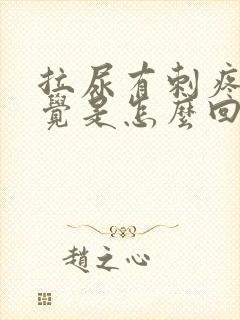 拉尿有刺疼
覺是怎麼回
趙之心